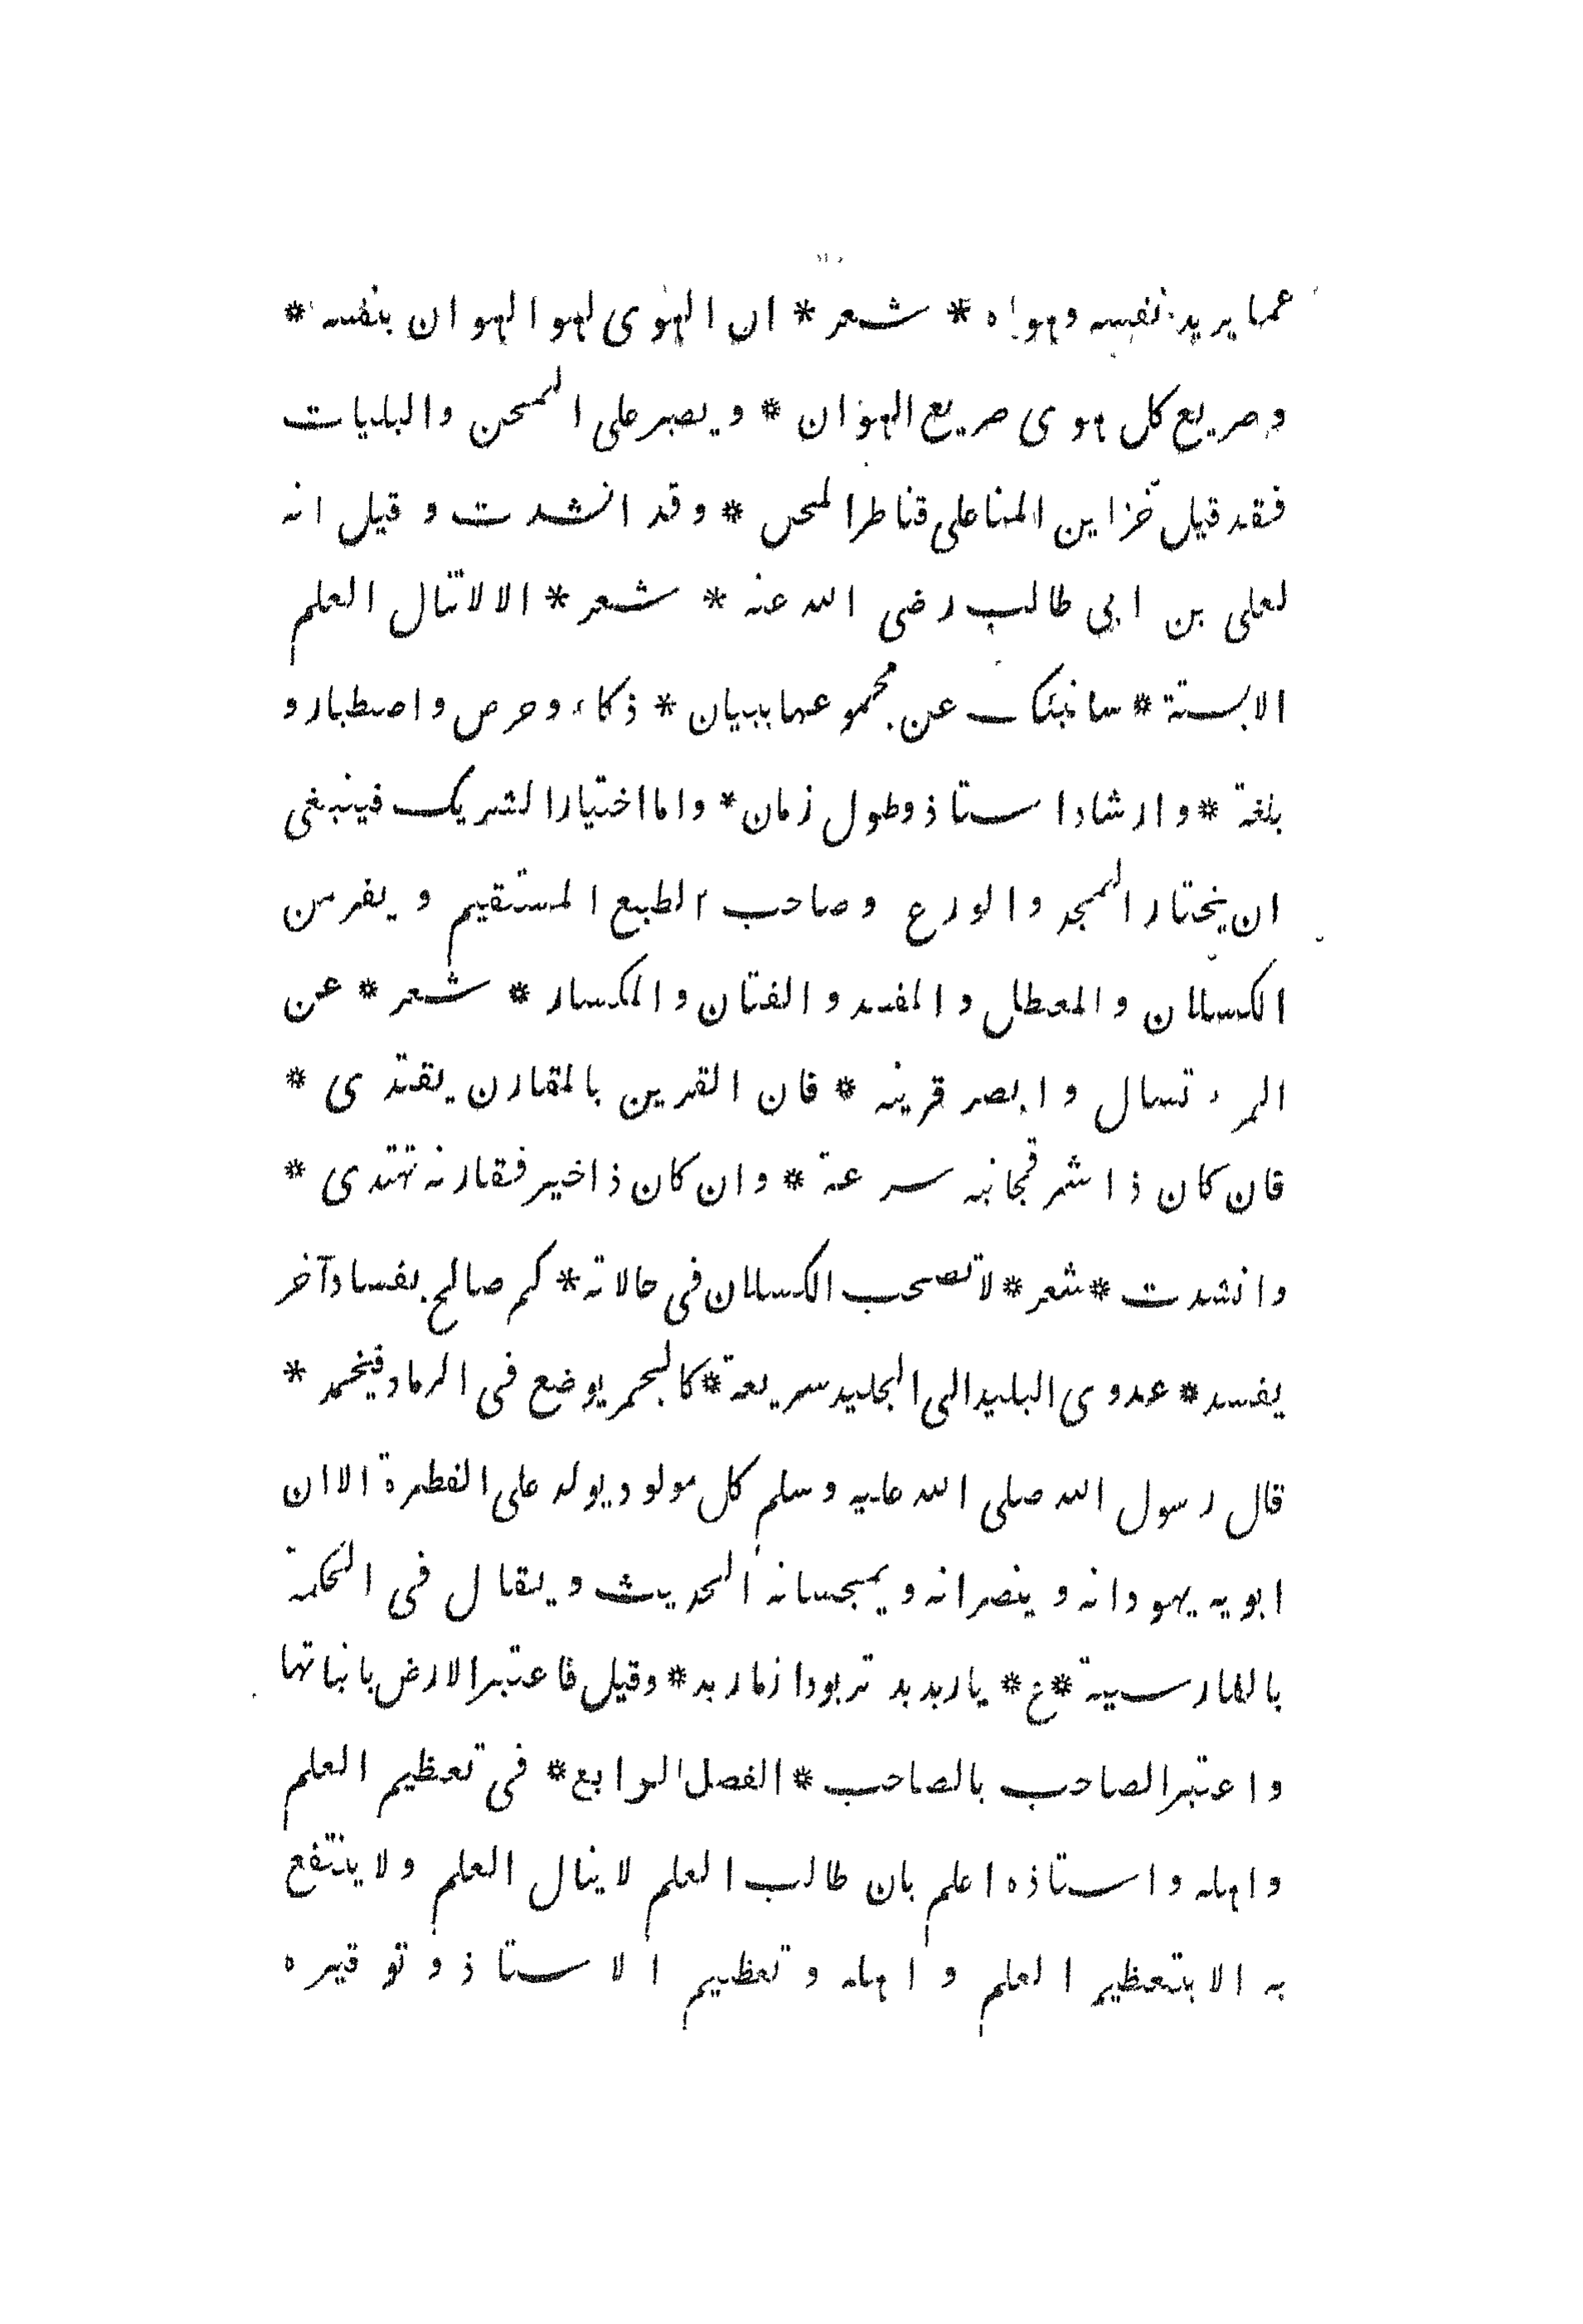 عما يريد نفسه وهواه * شعر * ان الهوى لهو الهوان بنفسه *
وصريع كل هوى صريع الهوان * ويصبر على المحن والبليات
فقد قيل خزاين المنا على قناطر المحن * وقد انشدت وقيل انه
لعلى بن ابى طالب رضى الله عنه * شعر * الا لاتنال العلم
الا بستة * سانبئك عن مجموعها ببيان * ذكاء وحرص واصطبار و
بلغة * وارشاد استاذ وطول زمان * واما اختيار الشريك فينبغى
ان يختار المجد والورع وصاحب الطبع المستقيم ويفر من
الكسلان والمعطل والمفسد والفتان والمكسار * شعر * عن
المرء تسال وابصر قرينه * فان القرين بالمقارن يقتدى *
فان كان ذا شر فجانبه سرعة * وان كان ذا خير فقارنه تهتدى *
وانشدت * شعر * لا تصحب الكسلان فى حالاته * كم صالح بفساد آخر
يفسد * عدوى البليد الى الجليد سريعة * كالجمر يوضع فى الرماد فيخمد *
قال رسول الله صلى الله عليه وسلم كل مولود يولد على الفطرة الا ان
ابويه يهودانه وينصرانه ويمجسانه الحديث ويقال فى الحكمة
بالفارسية * ع * يار بد بد تر بود از مار بد * وقيل فاعتبر الارض بانباتها
واعتبر الصاحب بالصاحب * الفصل الرابع * فى تعظيم العلم
واهله واستاذه اعلم بان طالب العلم لا ينال العلم ولا ينتفع
به الا بتعظيم العلم واهله وتعظيم الاستاذ وتوقيره